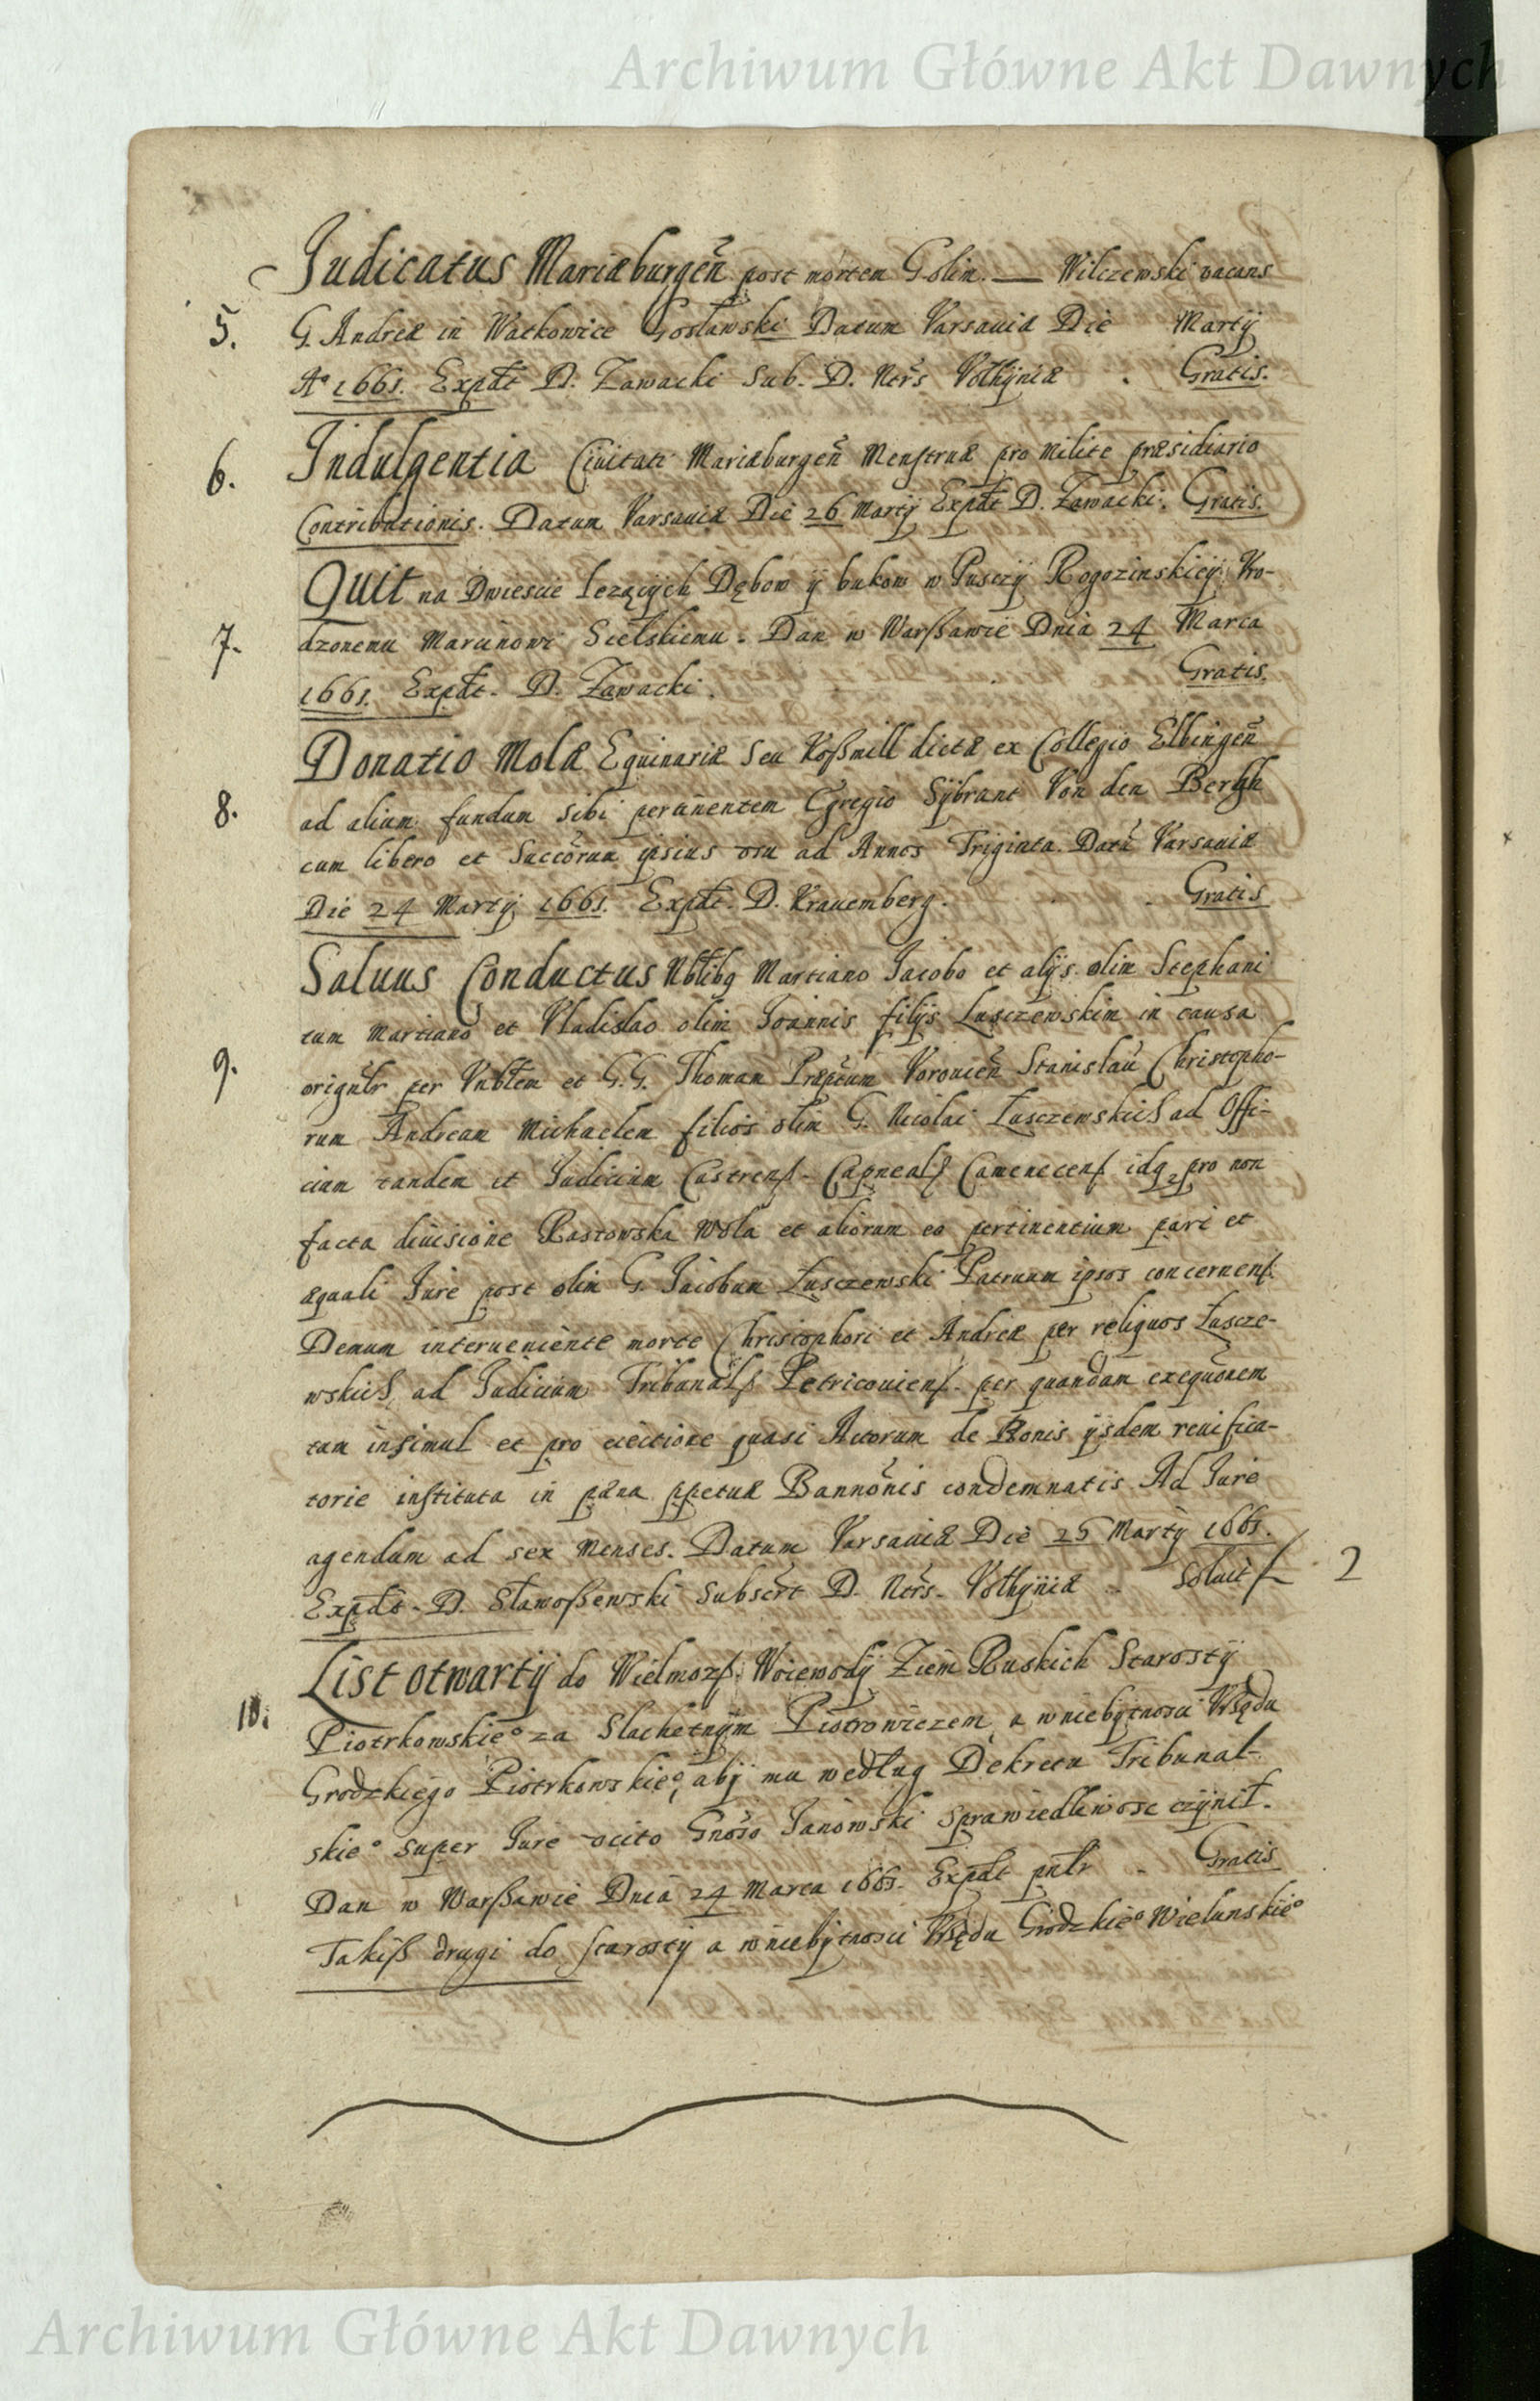 Archiwum Główne Akt Dawnych
Judicatus Mariæburgen̄ post mortem G. olim. — Wilczewski vacans
5. G. Andreæ in Waćkowice Gosławski Datum Varsaviæ Die Martij
Aº 1661. Expdt D. Zawacki Sub. D. Ntrs Volhyniæ . Gratis.
6. Indulgentia Civitati Mariæburgen̄ Menstruæ pro Milite præsidiario
Contributionis. Datum Varsaviæ Die 26 Martij Expdt D. Zawacki. Gratis.
Quit na Dwiescie lezących Dębow ij bukow w Pusczij Rogozinskieij Vro-
7. dzonemu Marcinowi Sielskiemu. Dan w Warßawie Dnia 24 Marca
1661. Expdt. D. Zawacki. Gratis.
Donatio Molæ Equinariæ Seu Roßmill dictæ ex Collegio Elbingen̄
8. ad alium fundum sibi pertinentem Egregio Sÿbrant Von den Bergh
cum libero et Succōrum ipsius usu ad Annos Triginta. Datū Varsaviæ
Die 24 Martij 1661. Expdt. D. Krauemberg. Gratis
Salvus Conductus Nbtibq Martiano Jacobo et alijs olim Stephani
tum Martiano et Vladislao olim Joannis filijs Lusczewskim in causa
9. originlr per Vnbtem et G.G. Thomam Præptum Voronicen̄ Stanislaū Christopho-
rum Andream Michaelem filios olim G. Nicolai Łusczewskich ad Offi-
cium tandem et Judicium Castrenſ. Capnealſ Camenecenſ idq pro non
facta divisione Rastowska Wola et aliorum eo pertinentium pari et
æquali Jure post olim G. Jacobum Łusczewski Patruum ipsos concernenſ.
Demum interveniente morte Christophori et Andreæ per reliquos Łuscze-
wskich, ad Judicium Tribunalſ Petricoviensſ. per quandam exequōnem
tam insimul et pro eiectione quasi Actorum de Bonis ijsdem reuifica-
torie instituta in pæna ppetuæ Bannōnis condemnatis Ad Jure
agendum ad sex Menses. Datum Varsaviæ Die 26 Martij 1661.
Expdt. D. Sławoßewski Subscrt D. Ntrs. Volhyniæ . Solvit f 2
List otwartij do Wielmozſ. Woiewodij Ziem Ruskich Starostij
10. Piotrkowskieº za Slachetnÿm Piotrowiczem, a wniebÿtnosci Vrzędu
Grodzkiego Piotrkowskieº, abÿ mu według Dekretu Tribunal-
skieº super Jure ocito Gnoso Janowski sprawiedliwosc czÿnił.
Dan w Warßawie Dnia 24 Marca 1661. Expdt pntr . Gratis
Takiß drugi do starostÿ a wniebÿtnosci Vrzędu Grodzkieº Wielunskieº
Archiwum Główne Akt Dawnych